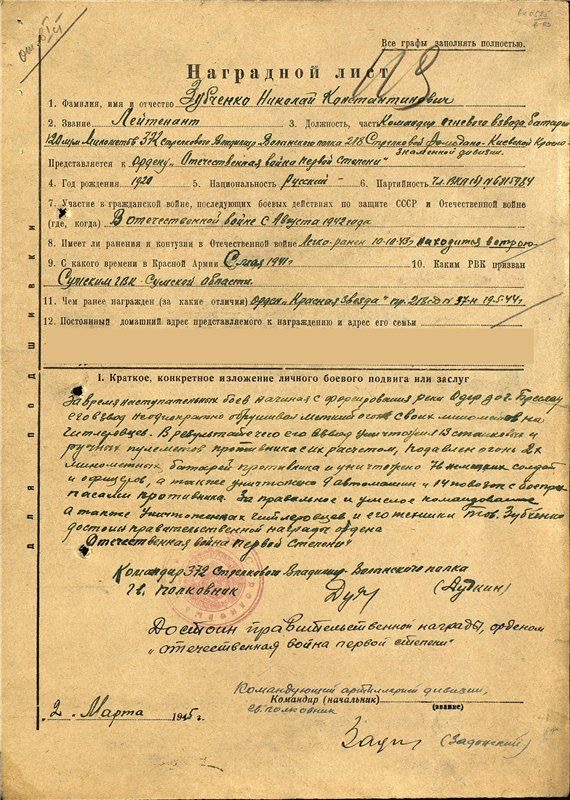 Все графы заполнять полностью.
Наградной лист
1. Фамилия, имя и отчество Зубченко Николай Константинович
2. Звание Лейтенант 3. Должность, часть Командир огневого взвода батареи
120 м/м Минометов 372 стрелкового Владимир Волынского полка 218 Стрелковой Ромодано-Киевской Красно-
знаменной дивизии.
Представляется к ордену „Отечественная война первой степени"
4. Год рождения 1920 5. Национальность Русский 6. Партийность чл. ВКП(б) №
7. Участие в гражданской войне, последующих боевых действиях по защите СССР и Отечественной войне
(где, когда) В отечественной войне с Августа 1942 года
8. Имеет ли ранения и контузии в Отечественной войне Легко-ранен 10-10-43г. находится в строю
9. С какого времени в Красной Армии С мая 1941г 10. Каким РВК призван
Сумским ГВК Сумской области.
11. Чем ранее награжден (за какие отличия) орден „Красная Звезда" пр. 218 сд № 37-н 19.5.44г.
12. Постоянный домашний адрес представляемого к награждению и адрес его семьи
I. Краткое, конкретное изложение личного боевого подвига или заслуг
За время наступательных боев начиная с форсирования реки Одер до г. Бреслау
его взвод неоднократно обрушивал меткий огонь своих минометов на
гитлеровцев. В результате чего его взвод уничтожил 13 станковых и
ручных пулеметов противника с их расчетом, подавлен огонь 2х
минометных батарей противника и уничтожено немецких солдат
и офицеров, а также уничтожено автомашин и 14 повозок с боепри-
пасами противника. За правильное и умелое командование
а также уничтоженных гитлеровцев и его техники тов. Зубченко
достоин правительственной награды ордена
„Отечественная война первой степени"
Командир 372 Стрелкового Владимир-Волынского полка
гв. полковник (Дудкин)
Достоин правительственной награды, орденом
„отечественная война первой степени"
Командующий артиллерией дивизии,
Командир (начальник)
гв. полковник
(звание)
2 Марта 1945 г.
(Задонский)
Для подшивки